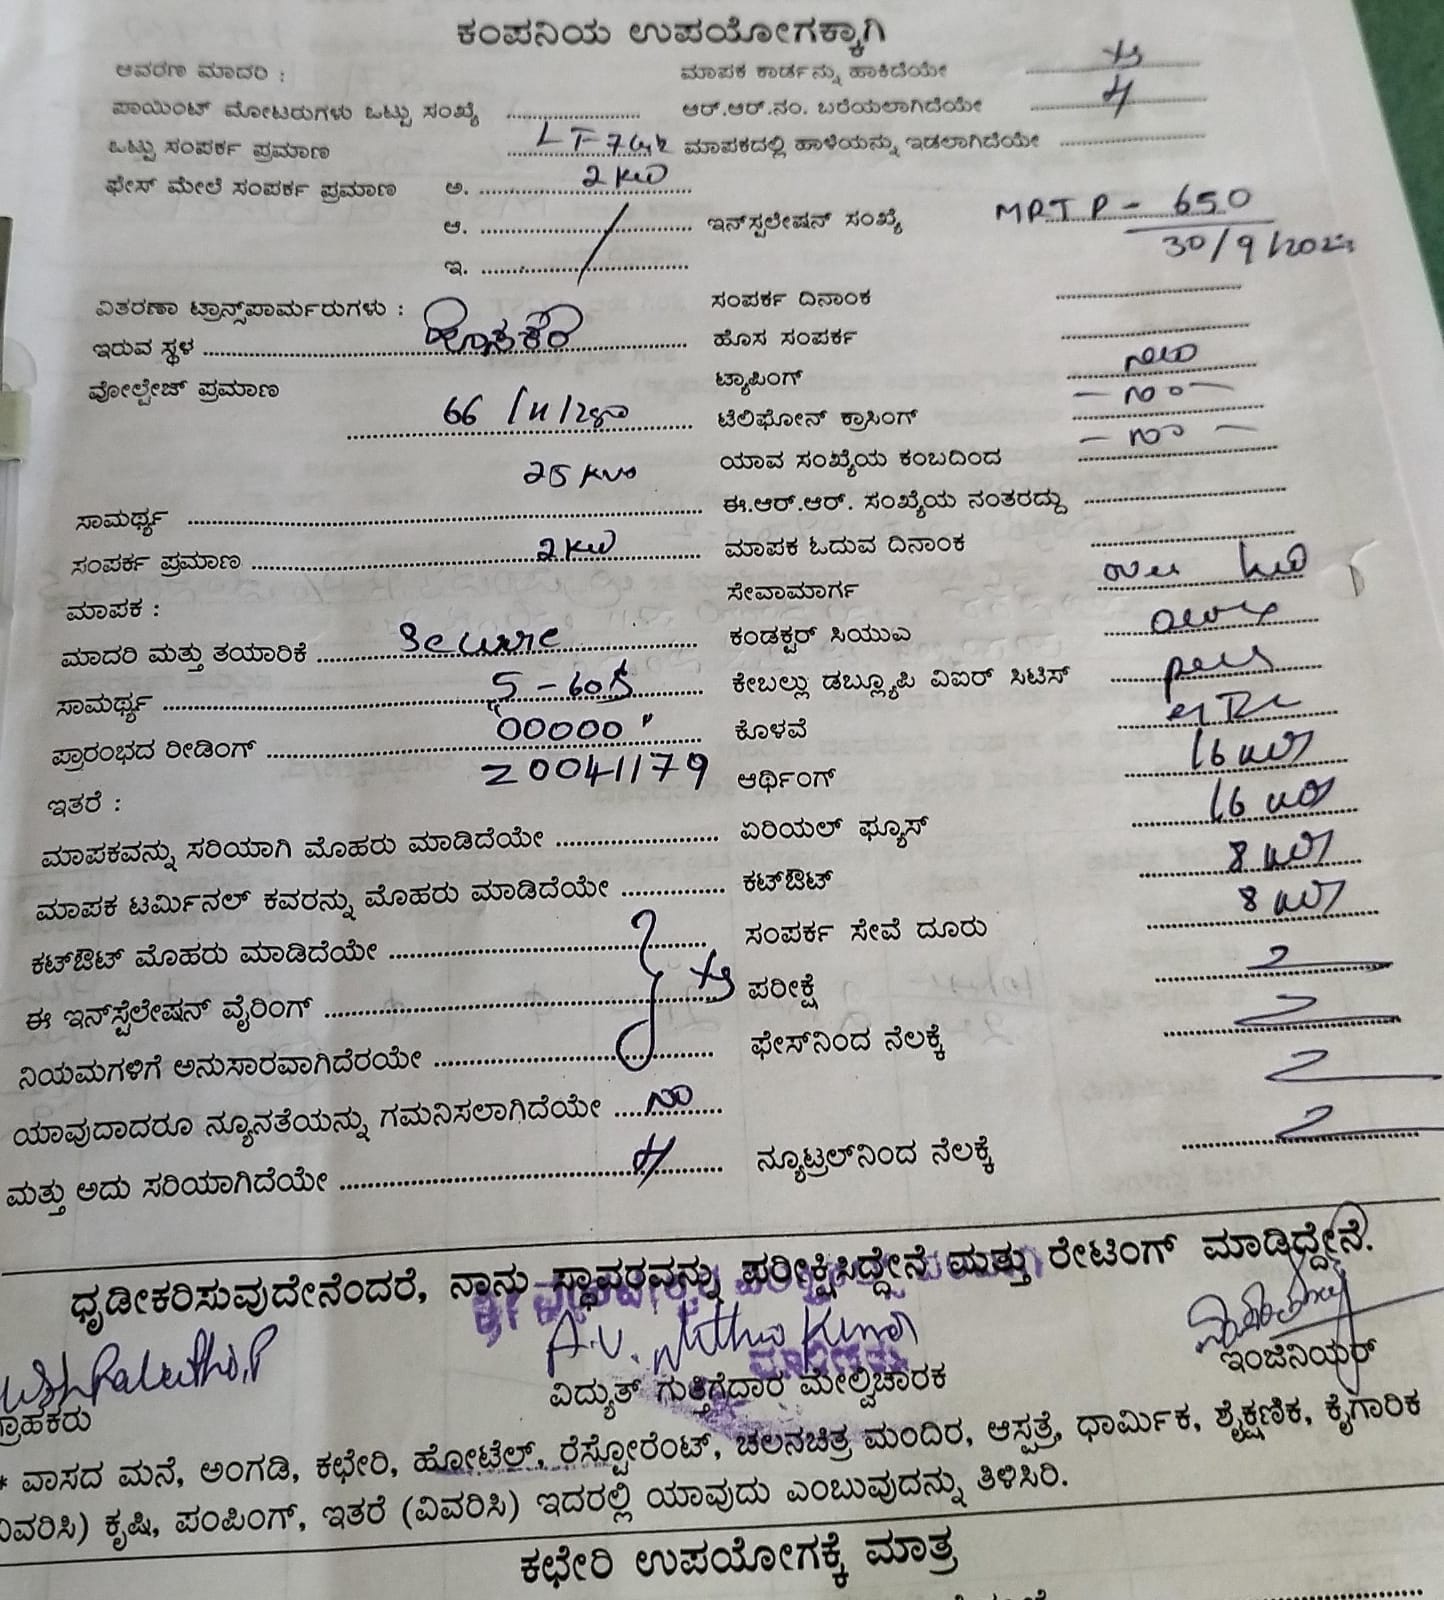 ಕಂಪನಿಯ ಉಪಯೋಗಕ್ಕಾಗಿ
ಆವರಣ ಮಾದರಿ : ಮಾಪಕ ಕಾರ್ಡನ್ನು ಹಾಕಿದೆಯೇ
ಪಾಯಿಂಟ್ ಮೋಟರುಗಳು ಒಟ್ಟು ಸಂಖ್ಯೆ ಆರ್.ಆರ್.ನಂ. ಬರೆಯಲಾಗಿದೆಯೇ
ಒಟ್ಟು ಸಂಪರ್ಕ ಪ್ರಮಾಣ ಮಾಪಕದಲ್ಲಿ ಹಾಳೆಯನ್ನು ಇಡಲಾಗಿದೆಯೇ
ಫೇಸ್ ಮೇಲೆ ಸಂಪರ್ಕ ಪ್ರಮಾಣ ಅ. 2 KW
ಆ. ಇನ್‌ಸ್ಟಲೇಷನ್ ಸಂಖ್ಯೆ MRTP - 650
ಇ. 30/9/2021
ವಿತರಣಾ ಟ್ರಾನ್ಸ್‌ಪಾರ್ಮರುಗಳು : ಸಂಪರ್ಕ ದಿನಾಂಕ
ಇರುವ ಸ್ಥಳ ಹೊಸಕೆರೆ ಹೊಸ ಸಂಪರ್ಕ
ವೋಲ್ಟೇಜ್ ಪ್ರಮಾಣ ಟ್ಯಾಪಿಂಗ್
66 /11/ ಟೆಲಿಫೋನ್ ಕ್ರಾಸಿಂಗ್
25 ಯಾವ ಸಂಖ್ಯೆಯ ಕಂಬದಿಂದ
ಸಾಮರ್ಥ್ಯ ಈ.ಆರ್.ಆರ್. ಸಂಖ್ಯೆಯ ನಂತರದ್ದು
ಸಂಪರ್ಕ ಪ್ರಮಾಣ 2 KW ಮಾಪಕ ಓದುವ ದಿನಾಂಕ
ಮಾಪಕ : ಸೇವಾಮಾರ್ಗ
ಮಾದರಿ ಮತ್ತು ತಯಾರಿಕೆ Secure ಕಂಡಕ್ಟರ್ ಸಿಯುಎ
ಸಾಮರ್ಥ್ಯ 5-60 ಕೇಬಲ್ಲು ಡಬ್ಲ್ಯೂಪಿ ವಿಐರ್ ಸಿಟಿಸ್
ಪ್ರಾರಂಭದ ರೀಡಿಂಗ್ 00000 ಕೊಳವೆ
20041179 ಆರ್ಥಿಂಗ್ 16
ಇತರೆ :
ಮಾಪಕವನ್ನು ಸರಿಯಾಗಿ ಮೊಹರು ಮಾಡಿದೆಯೇ ಏರಿಯಲ್ ಫ್ಯೂಸ್ 16
ಮಾಪಕ ಟರ್ಮಿನಲ್ ಕವರನ್ನು ಮೊಹರು ಮಾಡಿದೆಯೇ ಕಟ್‌ಔಟ್ 8
ಕಟ್‌ಔಟ್ ಮೊಹರು ಮಾಡಿದೆಯೇ ಸಂಪರ್ಕ ಸೇವೆ ದೂರು 8
ಈ ಇನ್‌ಸ್ಟೆಲೇಷನ್ ವೈರಿಂಗ್ ಪರೀಕ್ಷೆ 2
ನಿಯಮಗಳಿಗೆ ಅನುಸಾರವಾಗಿದೆರಯೇ ಫೇಸ್‌ನಿಂದ ನೆಲಕ್ಕೆ 2
ಯಾವುದಾದರೂ ನ್ಯೂನತೆಯನ್ನು ಗಮನಿಸಲಾಗಿದೆಯೇ 2
ಮತ್ತು ಅದು ಸರಿಯಾಗಿದೆಯೇ ನ್ಯೂಟ್ರಲ್‌ನಿಂದ ನೆಲಕ್ಕೆ 2
ಧೃಡೀಕರಿಸುವುದೇನೆಂದರೆ, ನಾನು ಸ್ಥಾವರವನ್ನು ಪರೀಕ್ಷಿಸಿದ್ದೇನೆ ಮತ್ತು ರೇಟಿಂಗ್ ಮಾಡಿದ್ದೇನೆ.
ಗ್ರಾಹಕರು ವಿದ್ಯುತ್ ಗುತ್ತಿಗೆದಾರ ಮೇಲ್ವಿಚಾರಕ ಇಂಜಿನಿಯರ್
* ವಾಸದ ಮನೆ, ಅಂಗಡಿ, ಕಛೇರಿ, ಹೋಟೆಲ್, ರೆಸ್ಟೋರೆಂಟ್, ಚಲನಚಿತ್ರ ಮಂದಿರ, ಆಸ್ಪತ್ರೆ, ಧಾರ್ಮಿಕ, ಶೈಕ್ಷಣಿಕ, ಕೈಗಾರಿಕ
ವಿವರಿಸಿ) ಕೃಷಿ, ಪಂಪಿಂಗ್, ಇತರೆ (ವಿವರಿಸಿ) ಇದರಲ್ಲಿ ಯಾವುದು ಎಂಬುವುದನ್ನು ತಿಳಿಸಿರಿ.
ಕಛೇರಿ ಉಪಯೋಗಕ್ಕೆ ಮಾತ್ರ